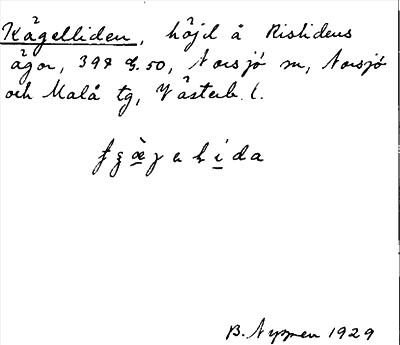 Kågelliden, höjd å Ristidens
ägor, 398 q. 50, Norsjö sn, Norsjö
och Malå tg, Västerb. l.
B. Nyman 1929